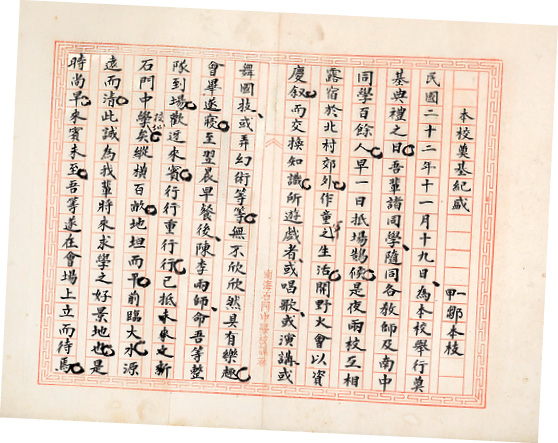 本校奠基紀盛
一甲 鄒本枝
民國二十二年十一月十九日、為本校舉行奠
基典禮之日吾輩諸同學、隨同各教師及南中
同學百餘人早一日抵場鵠候是夜兩校互相
露宿於北村郊外作童子軍之生活開野火會以資
慶叙而交換知識所遊戲者、或唱歌、或演講、或
舞國技、或弄幻術等等無不欣欣然具有樂趣
會畢遂寢至翌晨早餐後、陳李兩師、命吾等整
隊到場歡迎來賓行行重行行已抵未來之新
石門中學矣縱橫百畝地坦而平前臨大水源
遠而清此誠為我輩將來求學之好景地也是
時尚早來賓未至吾等遂在會場上立而待焉
南海石門中學校課藝